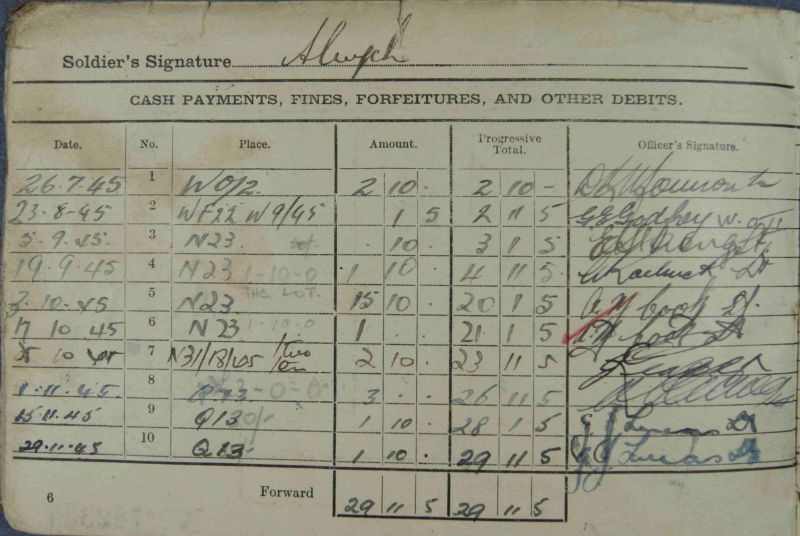 Soldier's Signature
CASH PAYMENTS, FINES, FORFEITURES, AND OTHER DEBITS.
Date. No. Place. Amount. Progressive Total. Officer's Signature.
26.7.45 1 W0/2 2 10 . 2 10 -
23-8-45 2 WF22 W9/45 1 5 2 11 5 G E Godfrey
5.9.45. 3 N23 . 10 . 3 1 5
19.9.45 4 N23 1-10-0 1 10 . 4 11 5 Lt
10.45 5 N23. THE LOT. 15 10 . 20 1 5 Lt.
17 10 45 6 N23 1-10-0 1 . . 21 1 5 Lt
10 7 N31/18/45 2 10 . 23 11 5
1.11.45. 8 3 . . 26 11 5
15.11.45 9 Q13 1 10 . 28 1 5 J Lucas Lt
29.11.45 10 Q13. 1 10 . 29 11 5 J Lucas Lt
6 Forward 29 11 5 29 11 5